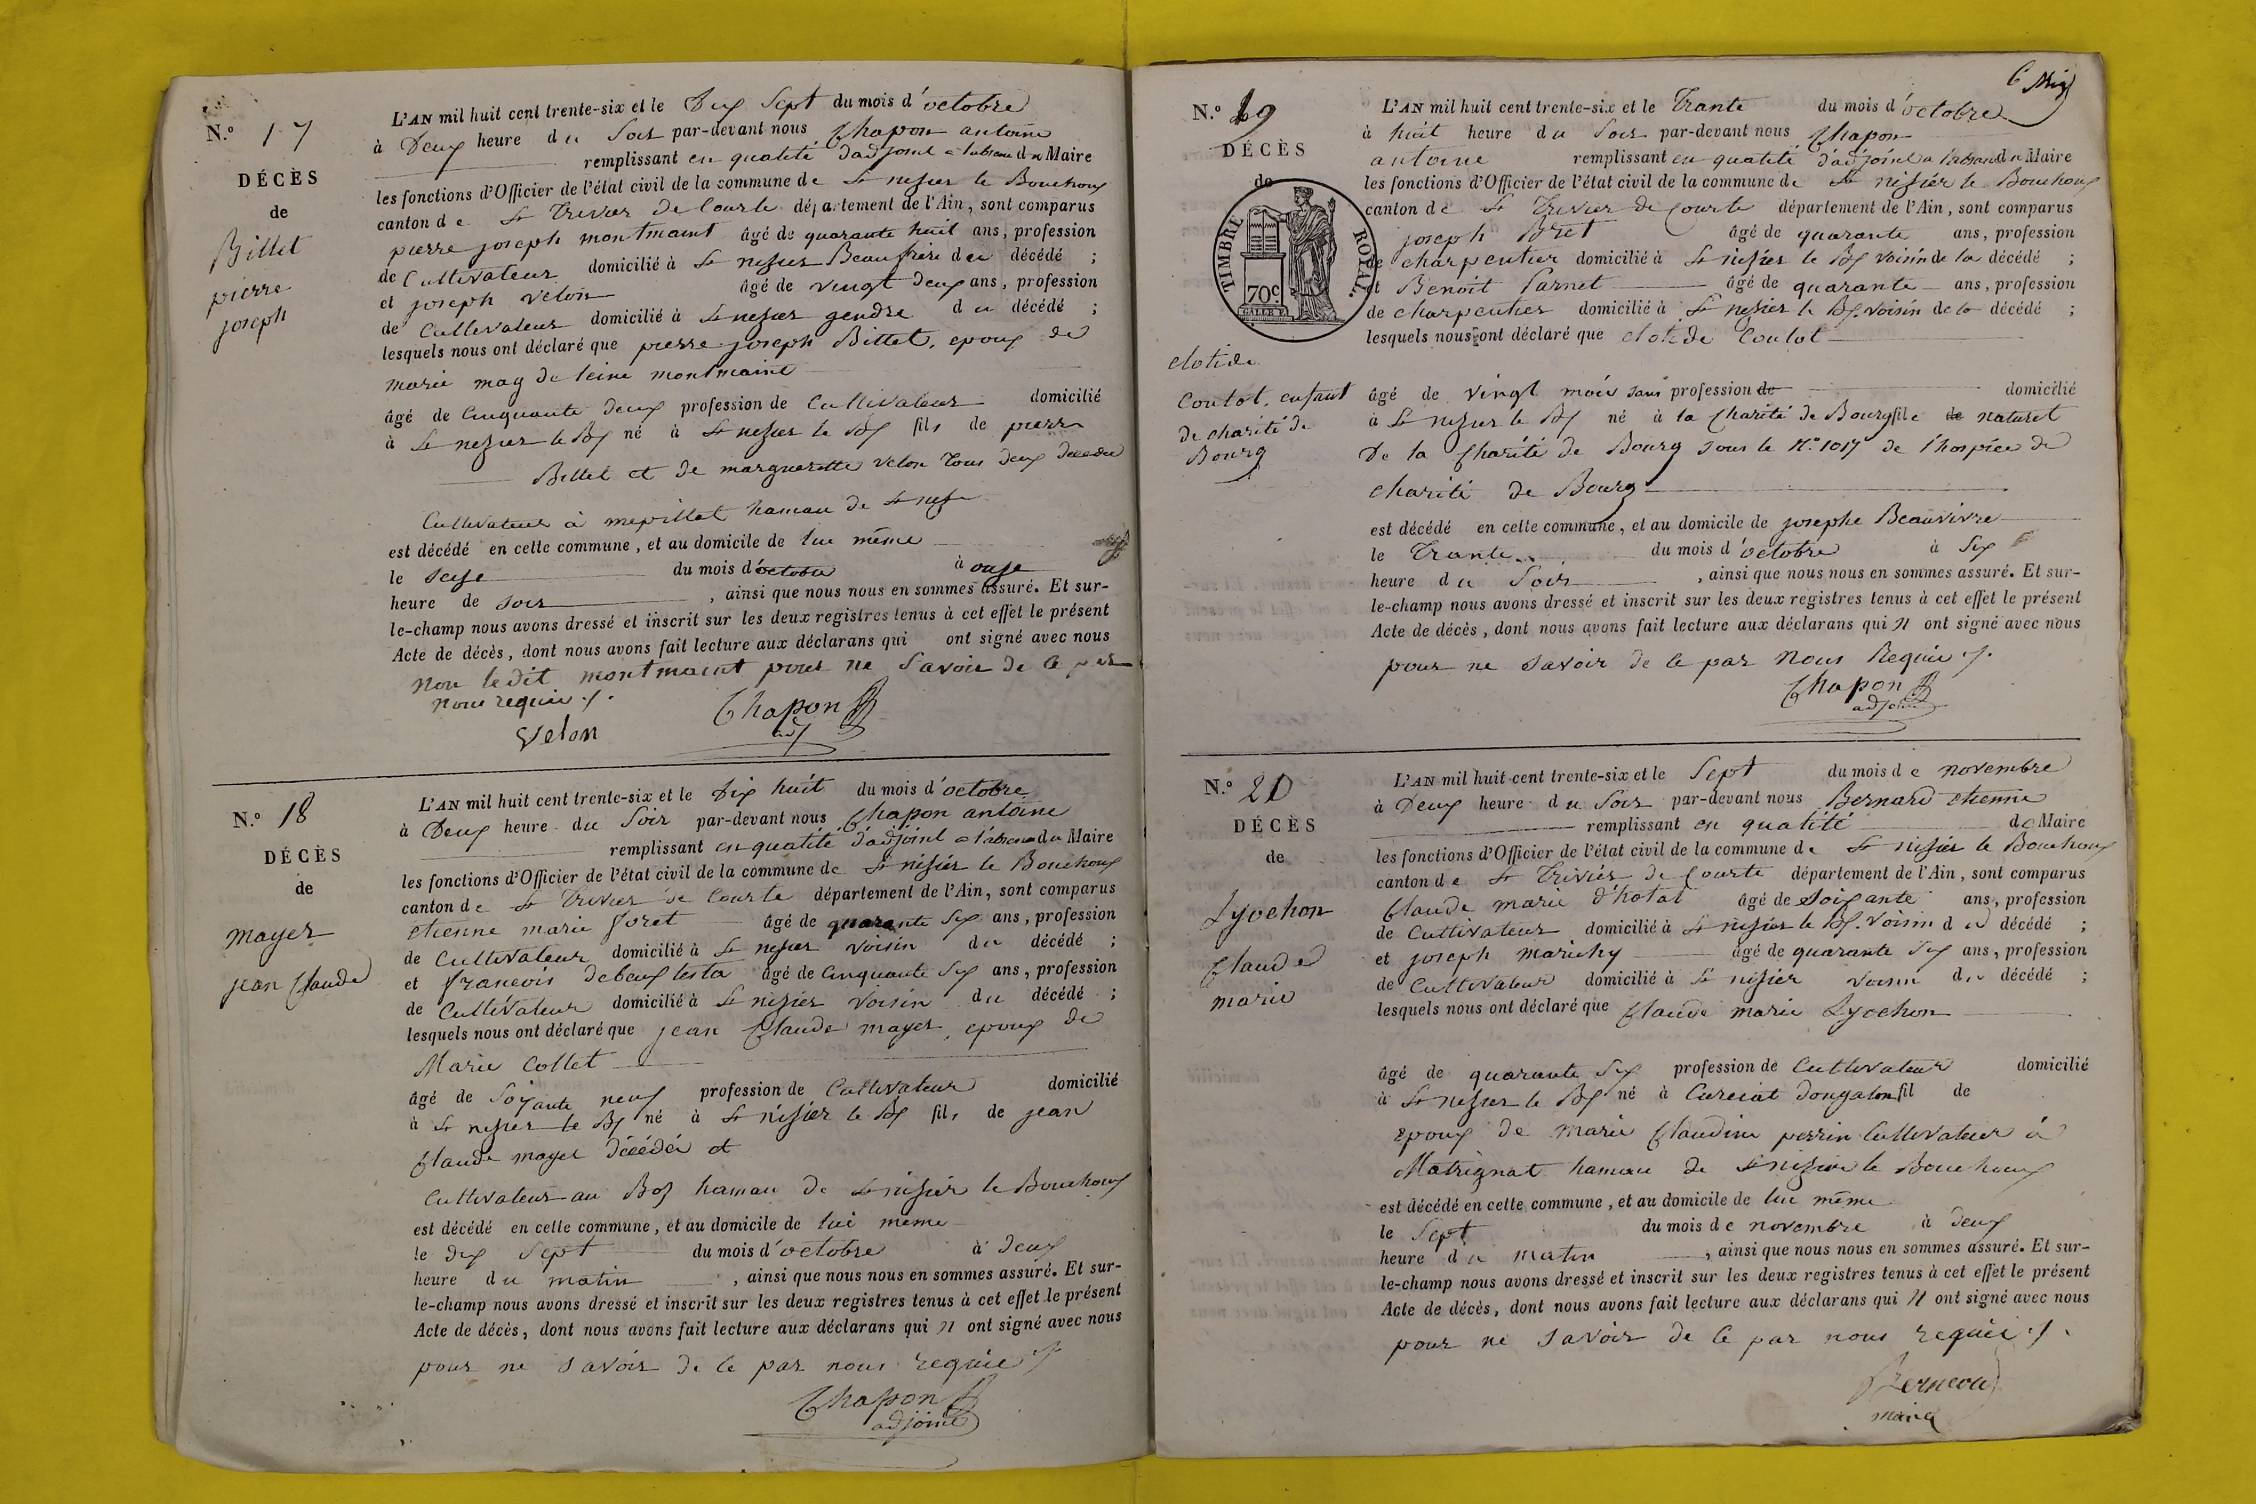 N.º 17
DÉCÈS
de
Billet
pierre
joseph
L'AN mil huit cent trente-six et le Dix Sept du mois d'octobre
à Deux heure du Soir par-devant nous Chapon antoine
remplissant en qualité d'adjoint a l'absence du Maire
les fonctions d'Officier de l'état civil de la commune de St nizier le Bouchoux
canton de St Trivier de Courte département de l'Ain, sont comparus
pierre joseph montmaint âgé de quarante huit ans, profession
de Cultivateur domicilié à St nizier Beaufrère du décédé ;
et joseph velon âgé de vingt deux ans, profession
de Cultivateur domicilié à St nizier gendre du décédé ;
lesquels nous ont déclaré que pierre joseph Billet, epoux de
marie mag de leine montmaint
âgé de Cinquante deux profession de Cultivateur domicilié
à St nizier le Bx né à St nizier le Bx fils de pierre
Billet et de marguerette velon tous deux décédés
Cultivateur à mepillat hamau de St nizier
est décédé en cette commune, et au domicile de lui même
le seize du mois d'octobre à onze
heure de soir, ainsi que nous nous en sommes assuré. Et sur-
le-champ nous avons dressé et inscrit sur les deux registres tenus à cet effet le présent
Acte de décès, dont nous avons fait lecture aux déclarans qui ont signé avec nous
non ledit montmaint pour ne savoir de ce par
nous requis ./.
Velon Chapon
adj
N.º 18
DÉCÈS
de
mayer
jean Claude
L'AN mil huit cent trente-six et le Dix huit du mois d'octobre
à Deux heure du Soir par-devant nous Chapon antoine
remplissant en qualité d'adjoint a l'absence du Maire
les fonctions d'Officier de l'état civil de la commune de St nizier le Bouchoux
canton de St Trivier de Courte département de l'Ain, sont comparus
etienne marie foret âgé de quarante six ans, profession
de Cultivateur domicilié à St nizier voisin du décédé ;
et francois debeux testa âgé de Cinquante six ans, profession
de Cultivateur domicilié à St nizier voisin du décédé ;
lesquels nous ont déclaré que jean Claude mayer, epoux de
Marie Collet
âgé de Soixante neuf profession de Cultivateur domicilié
à St nizier le Bx né à St nizier le Bx fils de jean
Claude mayer décédé et
Cultivateur au hamau de St nizier le Bouchoux
est décédé en cette commune, et au domicile de lui même
le dix sept du mois d'octobre à deux
heure du matin, ainsi que nous nous en sommes assuré. Et sur-
le-champ nous avons dressé et inscrit sur les deux registres tenus à cet effet le présent
Acte de décès, dont nous avons fait lecture aux déclarans qui n ont signé avec nous
pour ne savoir de ce par nous requis ./.
Chapon
adjoint
N.º 19
DÉCÈS
de
TIMBRE ROYAL.
70c
clotide
Coulot, enfant
de charité de
Bourg
L'AN mil huit cent trente-six et le Trante du mois d'octobre
à huit heure du Soir par-devant nous Chapon
antoine remplissant en qualité d'adjoint a l'absence du Maire
les fonctions d'Officier de l'état civil de la commune de St nizier le Bouchoux
canton de St Trivier de Courte département de l'Ain, sont comparus
joseph Bret âgé de quarante ans, profession
de charpentier domicilié à St nizier le Bx voisin de la décédé ;
et Benoit Parnet âgé de quarante ans, profession
de charpentier domicilié à St nizier le Bx. voisin de la décédé ;
lesquels nous ont déclaré que clotide Coulot
âgé de vingt mois sans profession de domicilié
à St nizier le Bx né à la Charité de Bourg file de naturel
De la Charité de Bourg sous le N.º 1017 de l'hospice de
charité de Bourg
est décédé en cette commune, et au domicile de josephe Beauvivre
le Trante du mois d'octobre à Six
heure du Soir, ainsi que nous nous en sommes assuré. Et sur-
le-champ nous avons dressé et inscrit sur les deux registres tenus à cet effet le présent
Acte de décès, dont nous avons fait lecture aux déclarans qui n ont signé avec nous
pour ne savoir de ce par nous Requis ./.
Chapon
adjoint
N.º 20
DÉCÈS
de
Lyochon
Claude
marie
L'AN mil huit cent trente-six et le Sept du mois de novembre
à Deux heure du Soir par-devant nous Bernard etienne
remplissant en qualité de Maire
les fonctions d'Officier de l'état civil de la commune de St nizier le Bouchoux
canton de St Trivier de Courte département de l'Ain, sont comparus
Claude marie d'hotal âgé de Soixante ans, profession
de Cultivateur domicilié à St nizier le Bx. voisin du décédé ;
et joseph marichy âgé de quarante six ans, profession
de Cultivateur domicilié à St nizier voisin du décédé ;
lesquels nous ont déclaré que Claude marie Lyochon
âgé de quarante six profession de Cultivateur domicilié
à St nizier le Bx né à Curciat dongalon fil de
epoux de marie Claudine perrin Cultivateur à
Matrignat hamau de St nizier le Bouchoux
est décédé en cette commune, et au domicile de lui même
le Sept du mois de novembre à deux
heure du matin, ainsi que nous nous en sommes assuré. Et sur-
le-champ nous avons dressé et inscrit sur les deux registres tenus à cet effet le présent
Acte de décès, dont nous avons fait lecture aux déclarans qui n ont signé avec nous
pour ne savoir de ce par nous requis ./.
maire